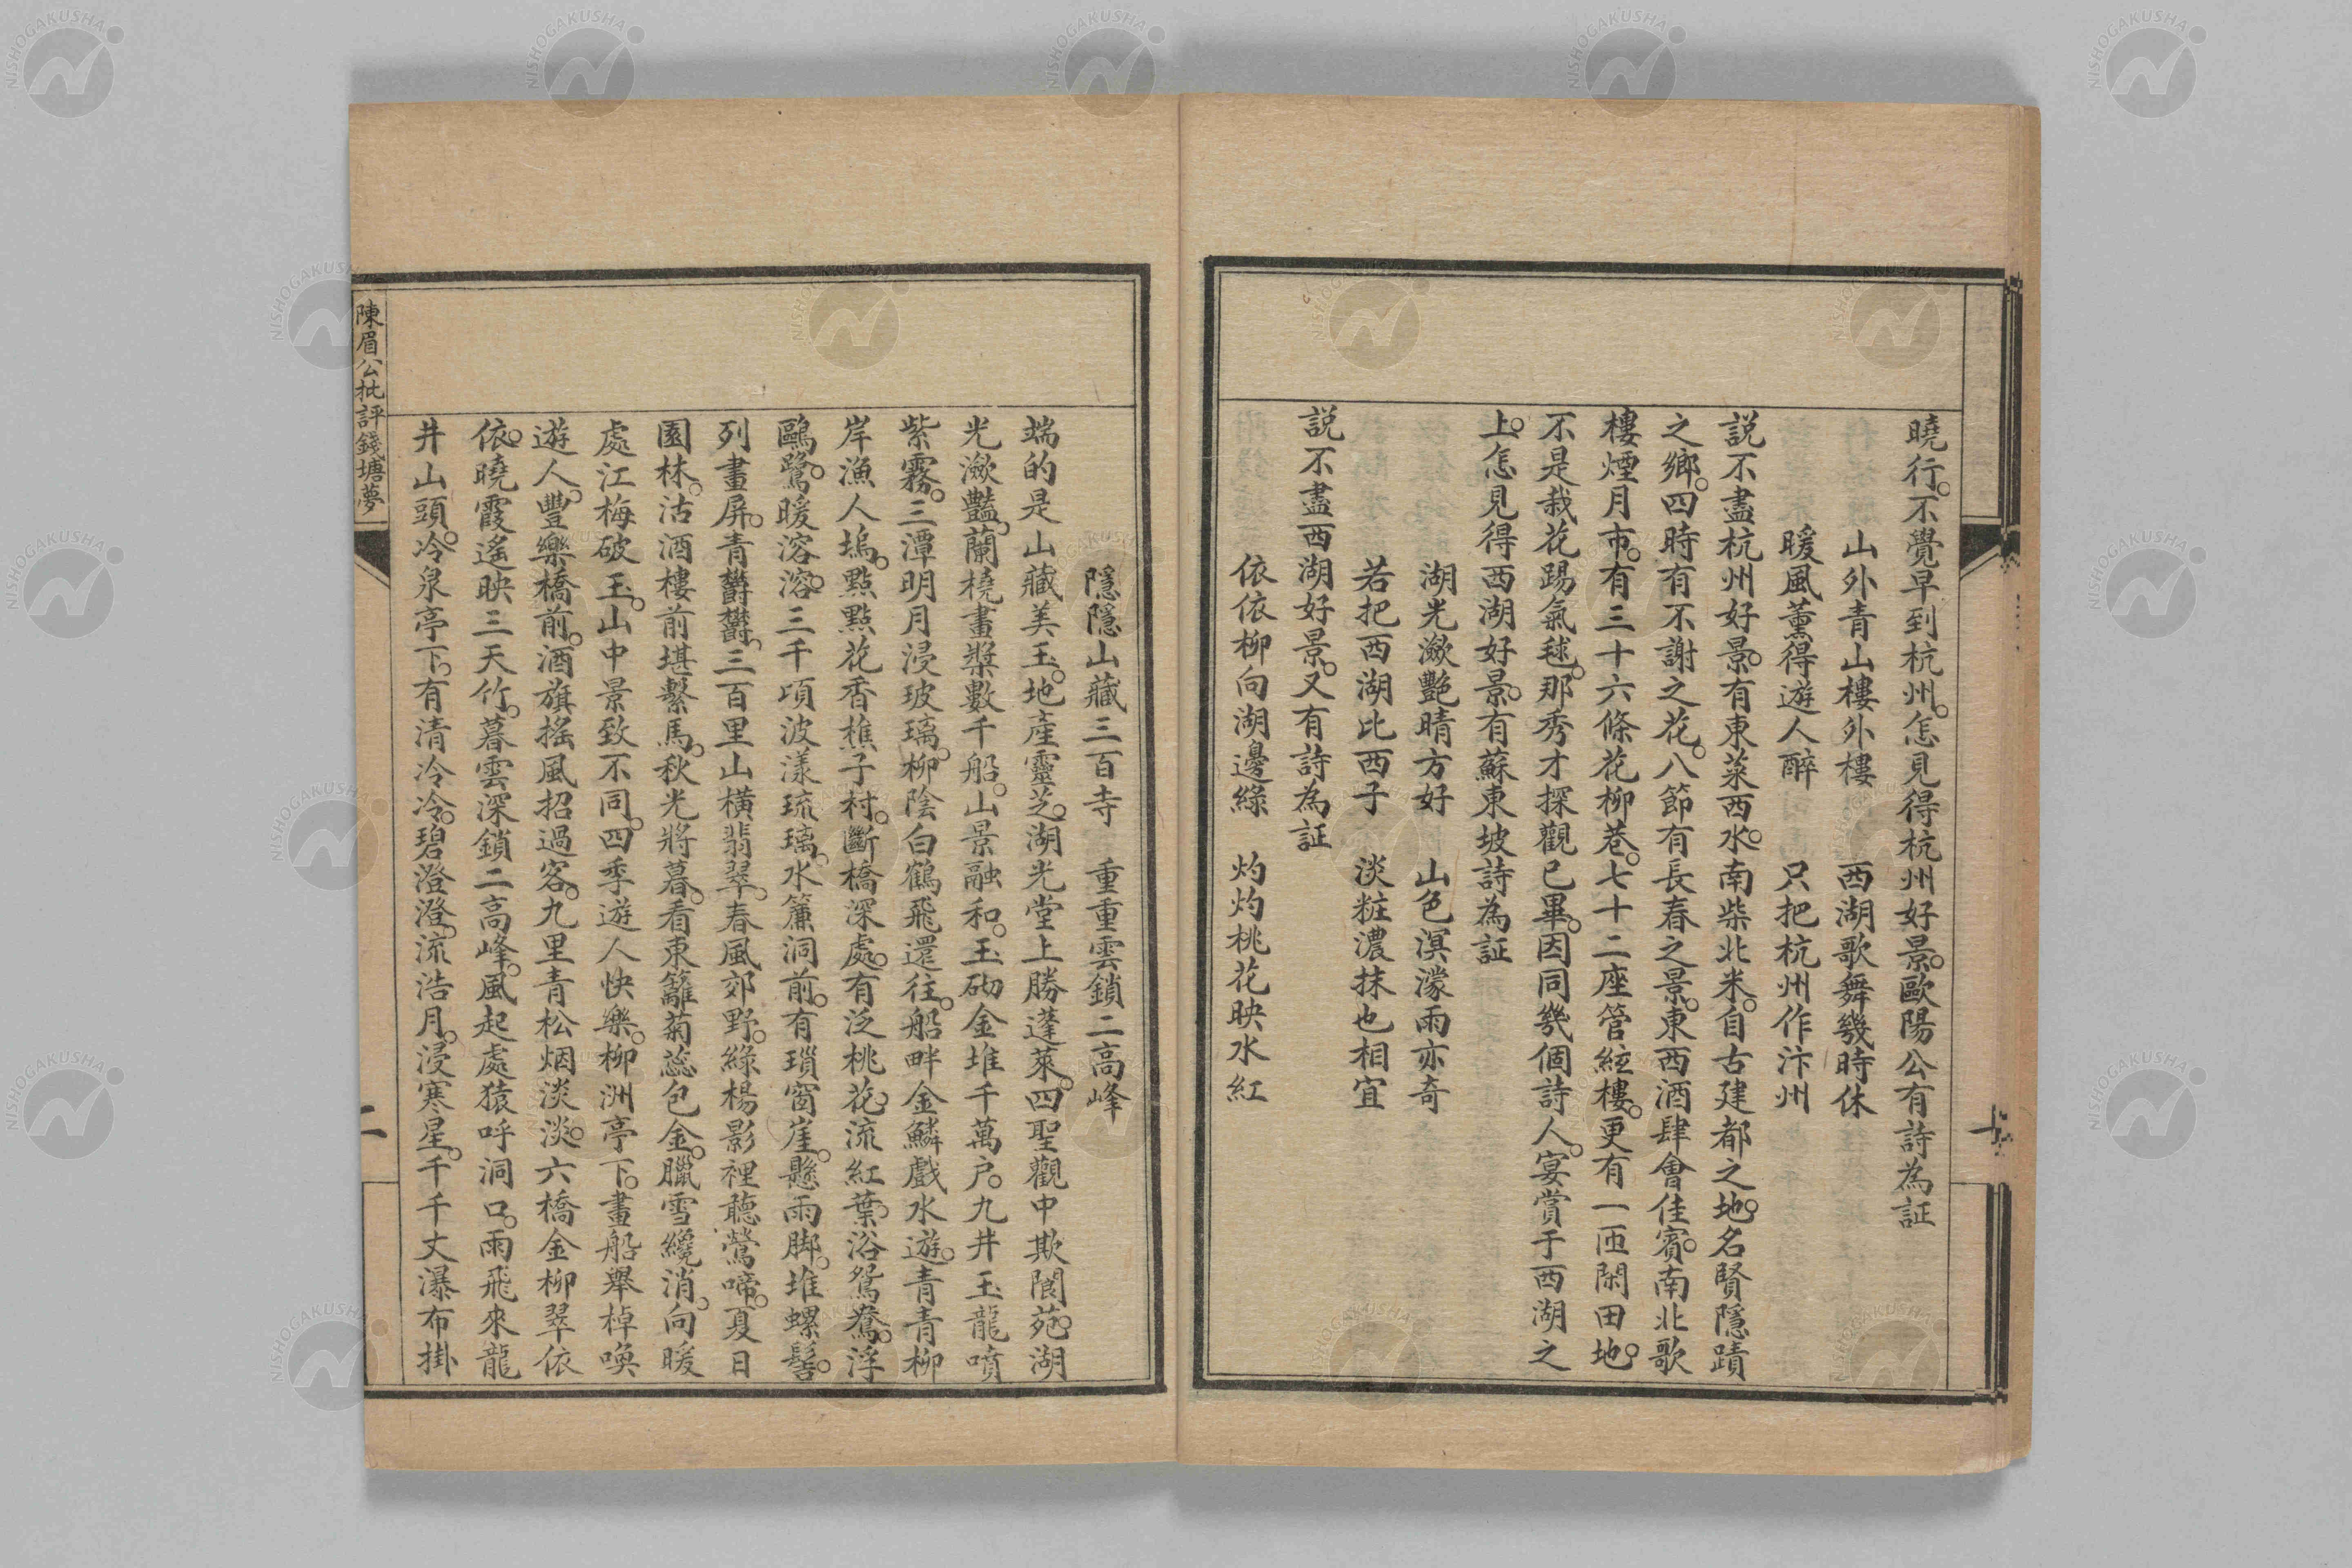 曉行。不覺早到杭州。怎見得杭州好景。歐陽公有詩為証
山外青山樓外樓　西湖歌舞幾時休
暖風薰得遊人醉　只把杭州作汴州
説不盡杭州好景。有東菜西水。南柴北米。自古建都之地。名賢隱蹟
之鄉。四時有不謝之花。八節有長春之景。東西酒肆會佳賓。南北歌
樓煙月市。有三十六條花柳巷。七十二座管絃樓。更有一匝閑田地。
不是栽花踢氣毬。那秀才探觀已畢。因同幾個詩人。宴賞于西湖之
上。怎見得西湖好景。有蘇東坡詩為証
湖光瀲艷晴方好　山色溟濛雨亦奇
若把西湖比西子　淡粧濃抹也相宜
説不盡西湖好景。又有詩為証
依依柳向湖邊綠　灼灼桃花映水紅
隱隱山藏三百寺　重重雲鎖二高峰
端的是山藏美玉。地產靈芝。湖光堂上勝蓬萊。四聖觀中欺閬苑。湖
光瀲豔。蘭橈畫槳數千船。山景融和。玉砌金堆千萬户。九井玉龍噴
紫霧。三潭明月浸玻璃。柳陰白鶴飛還往。船畔金鱗戲水遊。青青柳
岸漁人塢。點點花香樵子村。斷橋深處。有泛桃花。流紅葉。浴鴛鴦。浮
鷗鷺。暖溶溶。三千項波漾琉璃。水簾洞前。有瑣窗崖。懸雨脚。堆螺髻。
列畫屏。青欝欝。三百里山橫翡翠。春風郊野。綠楊影裡聽鶯啼。夏日
園林。沽酒樓前堪繫馬。秋光將暮。看東籬菊蕊包金。臘雪纔消。向暖
處江梅破玉。山中景致不同。四季遊人快樂。柳洲亭下。畫船舉棹喚
遊人。豐樂橋前。酒旗搖風招過客。九里青松烟淡淡。六橋金柳翠依
依。曉霞遙映三天竹。暮雲深鎖二高峰。風起處猿呼洞口。雨飛來龍
井山頭。冷泉亭下。有清冷冷。碧澄澄。流浩月。浸寒星。千千丈瀑布掛
陳眉公批評錢塘夢
二